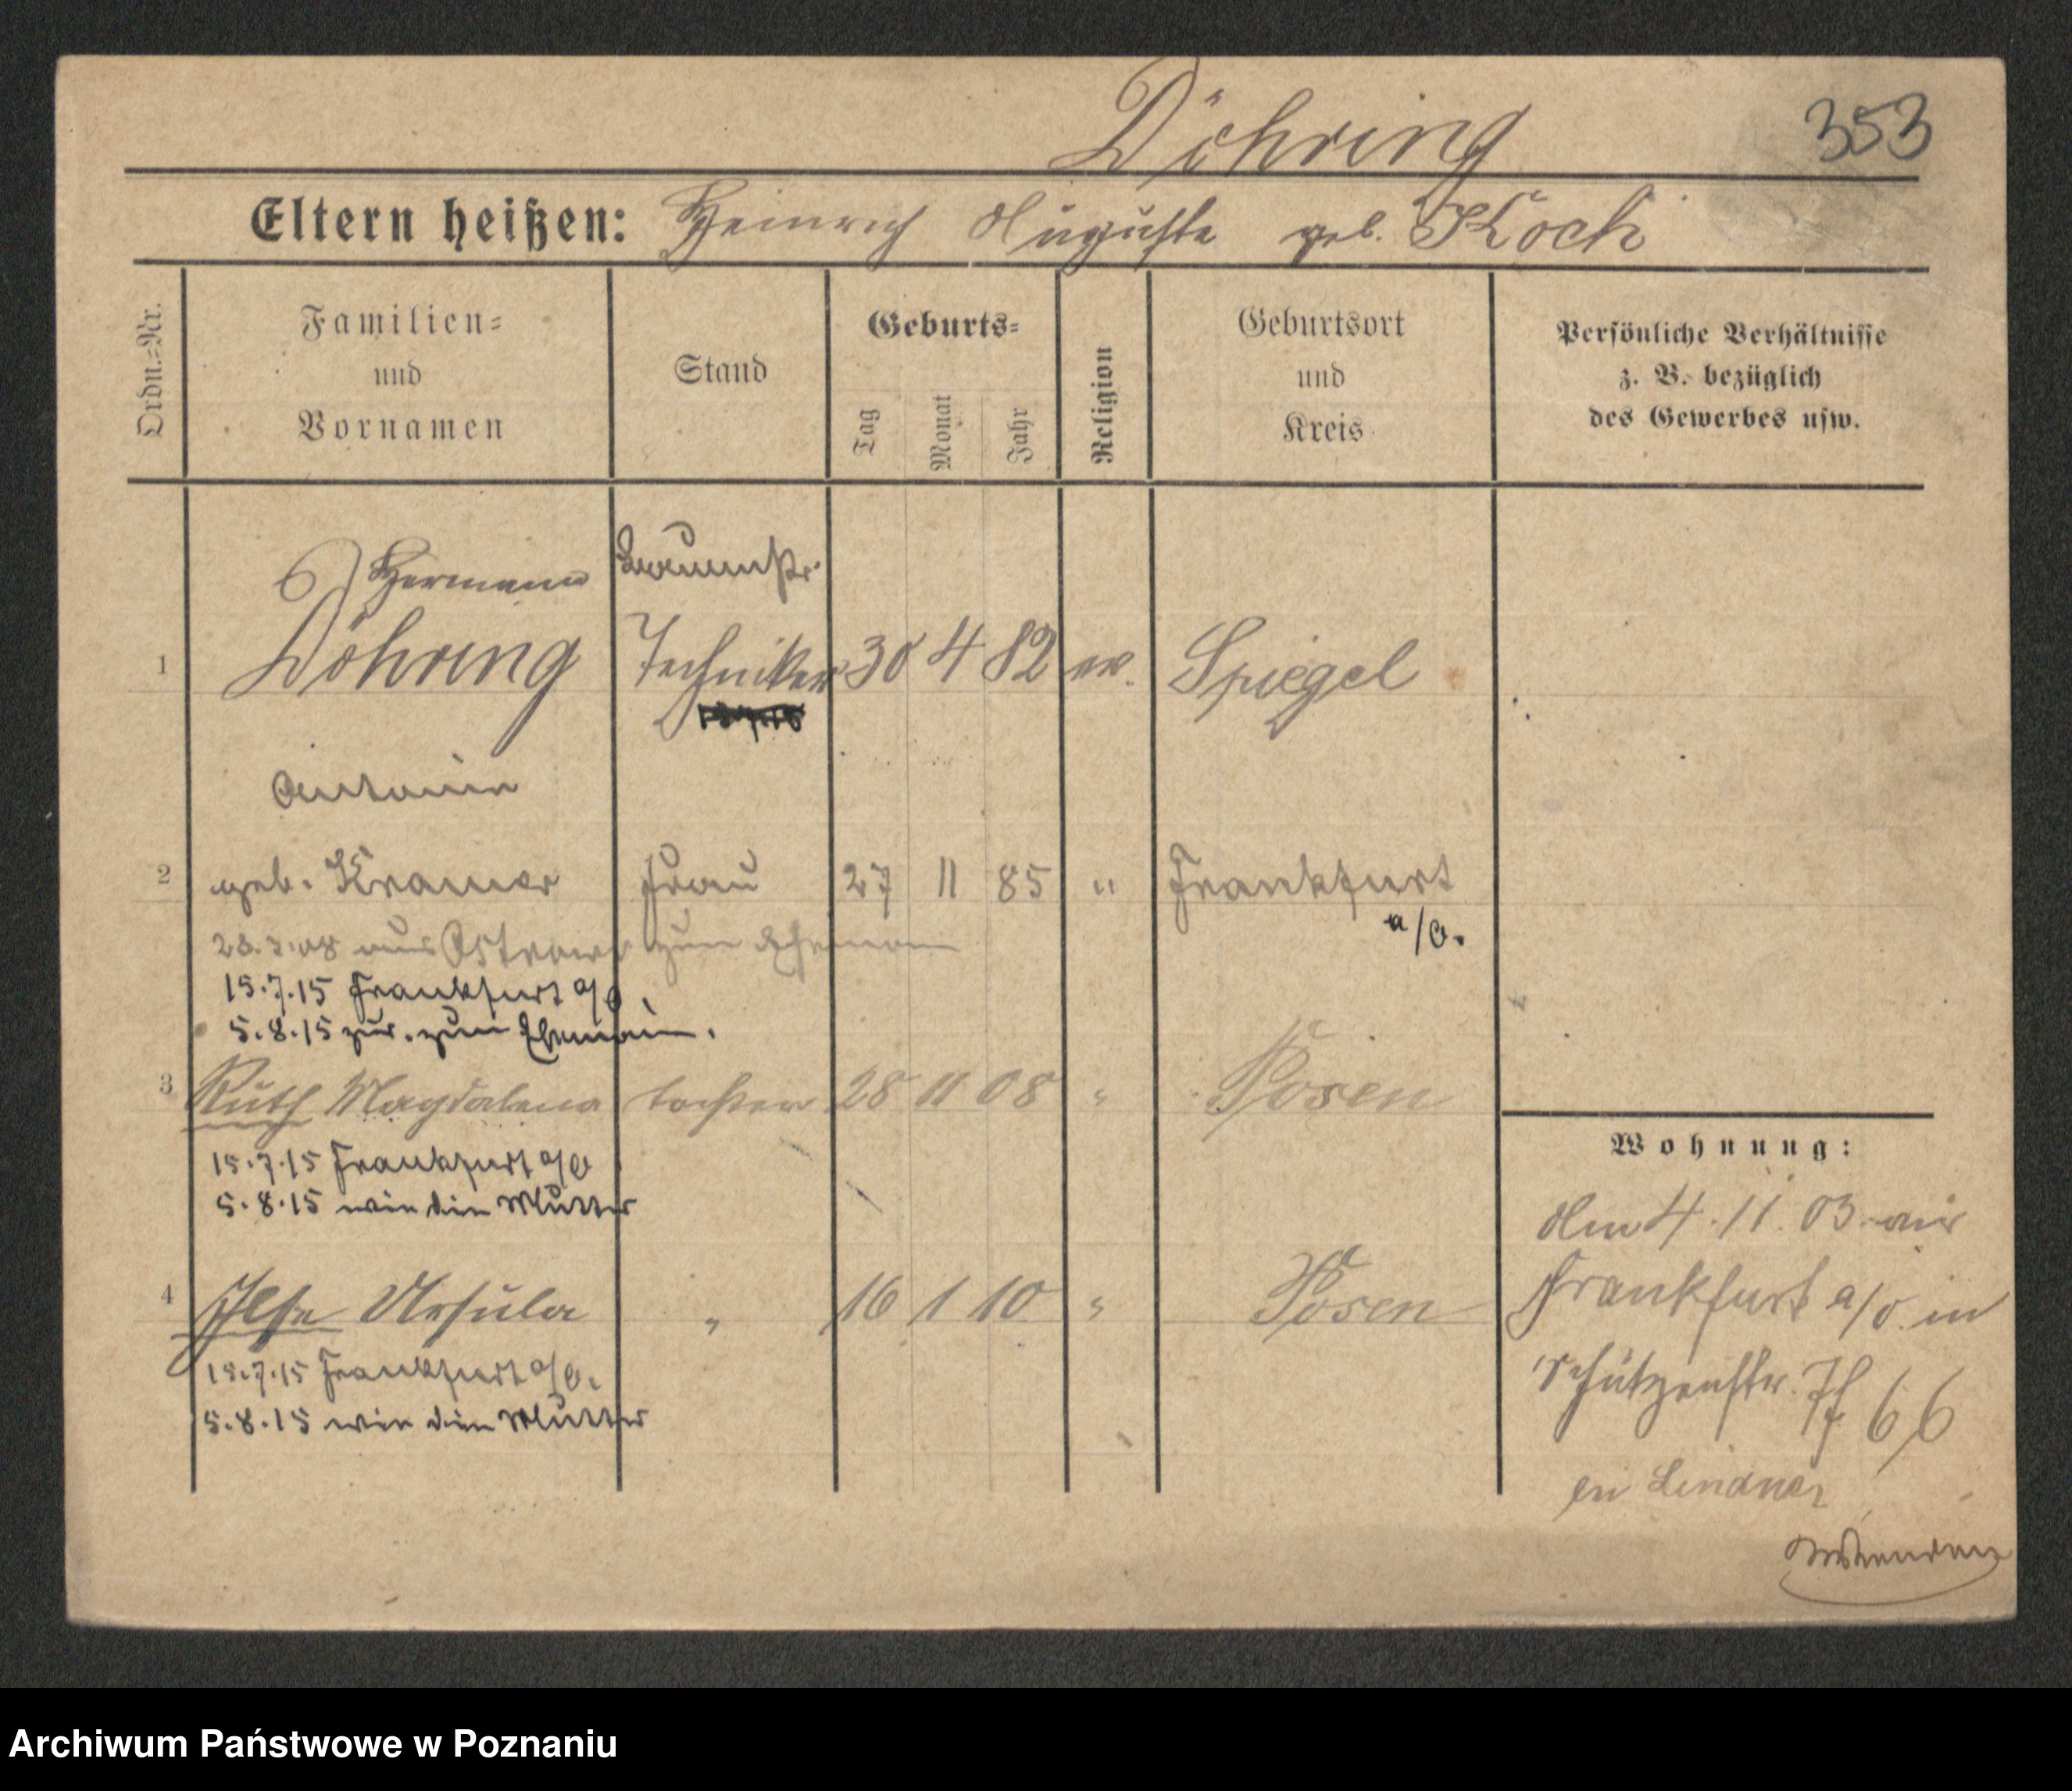 Döhring 353
Eltern heißen: Heinrich Auguste geb. Koch
Ordn.=Nr.
Familien=
und
Vornamen
Stand
Geburts=
Tag
Monat
Jahr
Religion
Geburtsort
und
Kreis
Persönliche Verhältnisse
z. B. bezüglich
des Gewerbes usw.
Hermann
1 Döhring Techniker 30 4 82 ev. Spiegel
2 geb. Kramer Frau 27 11 85 " Frankfurt
a/O.
aus Ostrowo zum Ehemann
15.7.15 Frankfurt a/O.
5.8.15 zur. zum Ehemann.
3 Ruth Magdalena Tochter 28 11 08 " Posen
15.7.15 Frankfurt a/O
5.8.15 wie die Mutter
4 Ilse Ursula " 16 1 10 " Posen
15.7.15 Frankfurt a/O.
5.8.15 wie die Mutter
Wohnung:
Am 4.11.03 aus
Frankfurt a/O. in
Schützenstr. 66
Lindner
Archiwum Państwowe w Poznaniu